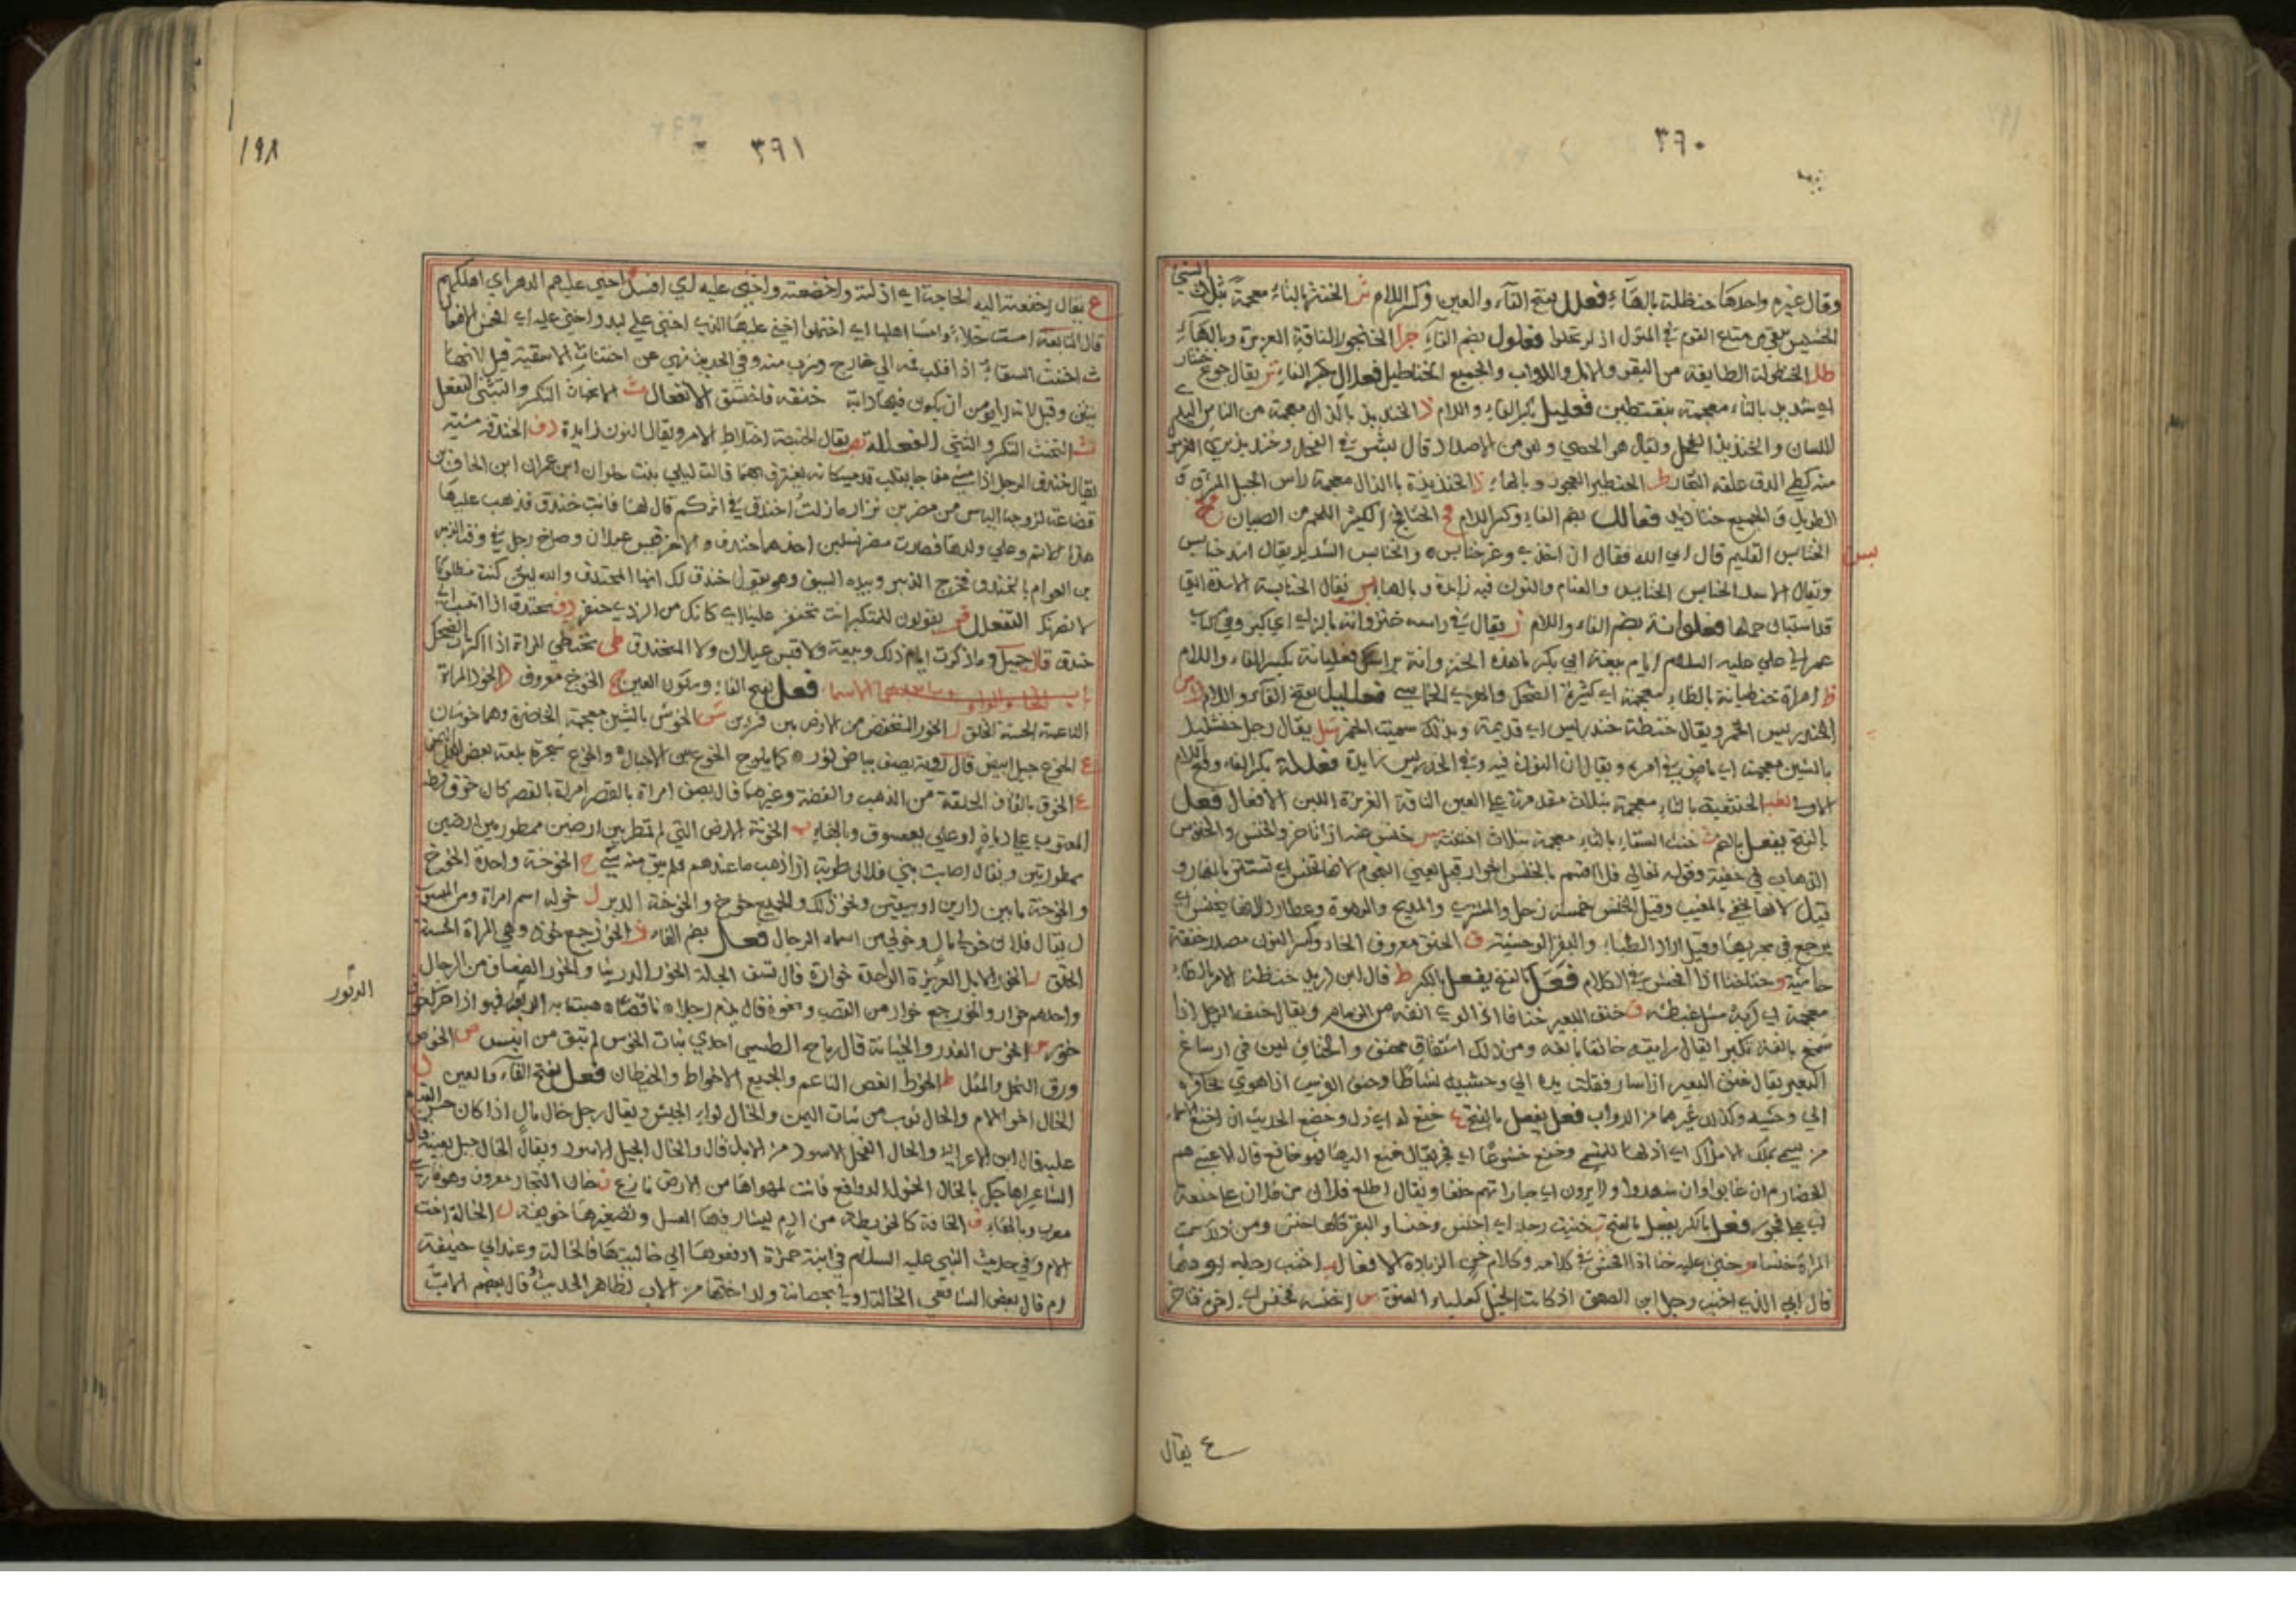 ٣٩٠
وقال غيره واحدها حنظلة بالهاء فعلل بفتح الفاء والعين وكسر اللام ث الخنثر بالثاء معجمة بثلاث الشيء
الخسيس يبقى من متاع القوم في المنزل اذا تحملوا فعلول بضم الفاء جر الخنجور الناقة العزيزة وبالهاء
طل الخنطولة الطايفة من البقر والابل والدواب والجميع الخناطيل فعلال بكسر الفاء تر يقال جوع خنتار
اي شديد بالتاء معجمة بنقطتين فعليل بكسر الفاء واللام ذ الخنذيذ بالذال معجمة من الناس البليغ
اللسان والخنذيذ الفحل ويقال هو الخصي وهو من الاضداد قال بشر في الفحل وخنذيذ ترى الغرمول
منه كطي الزق علقه التجار ط الخنطير العجوز وبالهاء ذ الخنذيذة بالذال معجمة راس الجبل المشرق
الطويل والجميع خناذيذ فعالل بضم الفاء وكسر اللام فج الخنافج الكثير اللحم من الصبيان
بس الخنابس القديم قال ابى الله فقال ان اخذى وعز خنابس والخنابس الشديد يقال اسد خنابس
ويقال الاسد الخنابس والنون فيه زايدة وبالهاء بس يقال الخنابسة الاسدة التي
قد استبان حملها فعلوانة بضم الفاء واللام ز يقال في راسه خنزوانة بالزاي اي كبر وفي كتاب
عمر الى علي عليه السلام ايام بيعة ابي بكر ما هذه الخنزوانة فعليانة بكسر الفاء واللام
ظ امراة خنظيانة بالظاء معجمة اي كثيرة الضحك والهزء الخماسي فعلليل بفتح الفاء واللام
الخندريس الخمر ويقال حنطة خندريس اي قديمة وبذلك سميت الخمر شل يقال رجل خنشليل
بالشين معجمة اي ماض في امره ويقال ان النون فيه وفي الخندريس زايدة فعللة بكسر الفاء وفتح اللام
الاولى ثعب الخنثعبة بالثاء معجمة بثلاث مقدمة على العين الناقة الغزيرة اللبن الافعال فعل
بالفتح يفعل بالضم ث خنث السقاء بالثاء معجمة بثلاث س خنس عنه اذا تاخر والخنس والخنوس
الذهاب في خفية وقوله تعالى فلا اقسم بالخنس الجوار قيل يعني النجوم لانها تخنس اي تستتر بالنهار و
قيل لانها تخفى بالمغيب وقيل الخنس خمسة زحل والمشتري والمريخ والزهرة وعطارد لانها تخنس اي
ترجع في مجريها وقيل اراد الظباء والبقر الوحشية ق الخنق معروف الخاء وكسر النون مصدر خنقه
حاشية و خنا خنا اذا افحش في الكلام فعل بالفتح يفعل بالكسر ظ قال ابن دريد خنظه الامر بالظاء
معجمة اي كربه مثل غنظه ف خنف البعير خنافا اذا لوى انفه من الزمام ويقال خنف الرجل اذا
شمخ بانفه تكبرا يقال رايته خانفا بانفه ومن ذلك اشتقاق مخنف والخناف لين في ارساغ
البعير يقال خنف البعير اذا سار فقلب يده الى وحشيه نشاطا وخنف الفرس اذا هوى بحافره
الى وحشيه وكذلك غيرهما من الدواب فعل يفعل بالفتح ع خنع له اي ذل وخضع الحديث ان اخنع الاسماء
من يسمى بملك الاملاك اي اذلها للتسمي وخنع خنوعا اي فجر يقال خنع اليها فهو خانع قال الاعشى هم
الخضارم ان غابوا وان شهدوا ولا يرون الى جاراتهم خنعا ويقال اطلع فلان من فلان على خنعة
اي على فجور فعل بالكسر يفعل بالفتح ب خنبت رجله اي س خنس وخنساء والبقر كلها خنس ومن ذلك سميت
المراة خنساء و خني عليه خنا اذا افحش في كلامه وكلام خن الزيادة الافعال ب اخنب رجله اوهنها
قال ابي الذي اخنب رجل ابن الصعق اذ كانت الخيل كعلباء العنق س اخنسه فخنس اي اخره فتاخر
ع يقال
٣٩١
١٩٨
ع يقال اخنعته اليه الحاجة اي اذلته واخضعته و اخنى عليه اي افسد اخنى عليهم الدهر اي اهلكهم
قال النابغة امست خلاء وامسى اهلها احتملوا اخنى عليها الذي اخنى على لبد واخنى عليه اي افحش الافتعال
ث اختنث السقاء اذا قلب فمه الى خارج وشرب منه وفي الحديث نهى عن اختناث الاسقية قيل لانها
ينتن وقيل لانه لا يومن ان يكون فيها دابة خنقه فاختنق الانفعال ث الانخناث التكسر والتثني التفعل
ث التخنث التكسر والتثني الفعللة يقال الخنبصة اختلاط الامر ويقال النون زايدة دف الخندفة مشية
يقال خندف الرجل اذا مشى مفاجا يقلب قدميه كانه يغترف بهما قالت ليلى بنت حلوان ابن عمران ابن الحاف بن
قضاعة لزوجها الياس بن مضر بن نزار ما زلت اخندف في اثركم قال لها فانت خندف فذهب عليها
هذا الاسم وعلى ولدها فصارت مضر نسلين احدهما خندف والاخر قيس عيلان وصاح رجل في وقت الزبير
بن العوام يا لخندف فخرج الزبير وبيده السيف وهو يقول خندف لك ايها المخندف والله لئن كنت مظلوما
لانصرنك التفعلل فر يقولون للمتكبر انت تخنفر علينا اي كانك من الزدي خنفر دف تخندف اذا انتسب الى
خندف قال جميل وما ذكرت ايام ذلك ربيعة ولا قيس عيلان ولا المتخندق ظى تخنظي المراة اذا اكثرت الضحك
باب الخاء والواو وما بعدهما الاسماء فعل بفتح الفاء وسكون العين خ الخوخ معروف د الخود المراة
الناعمة الحسنة الخلق ر الخور المنخفض من الارض بين نشزين ش الخوش بالشين معجمة الخاصرة وهما خوشان
ع الخوع جبل ابيض قال رؤبة يصف بياض ثور كما يلوح الخوع بين الاجبال والخوع شجرة بلغة بعض اهل اليمن
ق الخوق بالقاف الحلقة من الذهب والفضة وغيرهما قال يصف امراة بالقصر كان خوق قرطها
المعقوب على دباة او على يعسوب وبالهاء ب الخوبة الارض التي لم تمطر بين ارضين ممطورتين ارضين
ممطورتين ويقال اصابت بني فلان خوبة اذا ذهب ما عندهم فلم يبق منه شيء خ الخوخة واحدة الخوخ
والخوخة ما بين دارين او بيتين ونحو ذلك والجميع خوخ والخوخة الدبر ل خولة اسم امراة ومن المنسوب
ل يقال فلان خولي مال وخولي من اسماء الرجال فعل بضم الفاء د الخود جمع خود وهي المراة الحسنة
الخلق ر الخور الابل العزيزة الواحدة خوارة قال تسف الجلة الخور الدرينا والخور الضعاف من الرجال
واحدهم خوار والخور جمع خوار من القصب ونحوه قال يذم رجلا فهو اذا حركته
الدبور
خور ص الخوس الغدر والخيانة قال رياح الطسمي احدى بنات الخوس لم تبق من انيس ص الخوص
ورق النخل والمقل ط الخوط الغصن الناعم والجميع الاخواط والخيطان فعل بفتح الفاء والعين ل
الخال اخو الام والخال ثوب من ثياب اليمن والخال لواء الجيش ويقال رجل خال مال اذا كان حسن القيام
عليه قال ابن الاعرابي والخال الفحل الاسود من الابل قال والخال الجبل الاسود ويقال الخال جبل بعينه قال
الشاعر اهاجك بالخال الحمول الدوافع فانت لمهواها من الارض نازع ن خان التجار معروف وهو فارسي
معرب وبالهاء ف الخافة كالخريطة من ادم يشار فيها العسل وتصغيرها خويفة ل الخالة اخت
الام وفي حديث النبي عليه السلام في ابنة حمزة ادفعوها الى خالتها فالخالة وعند ابي حنيفة
ام قال بعض الشافعي الخالة اولى بحضانة ولد اختها من الاب لظاهر الحديث وقال بعضهم الاب